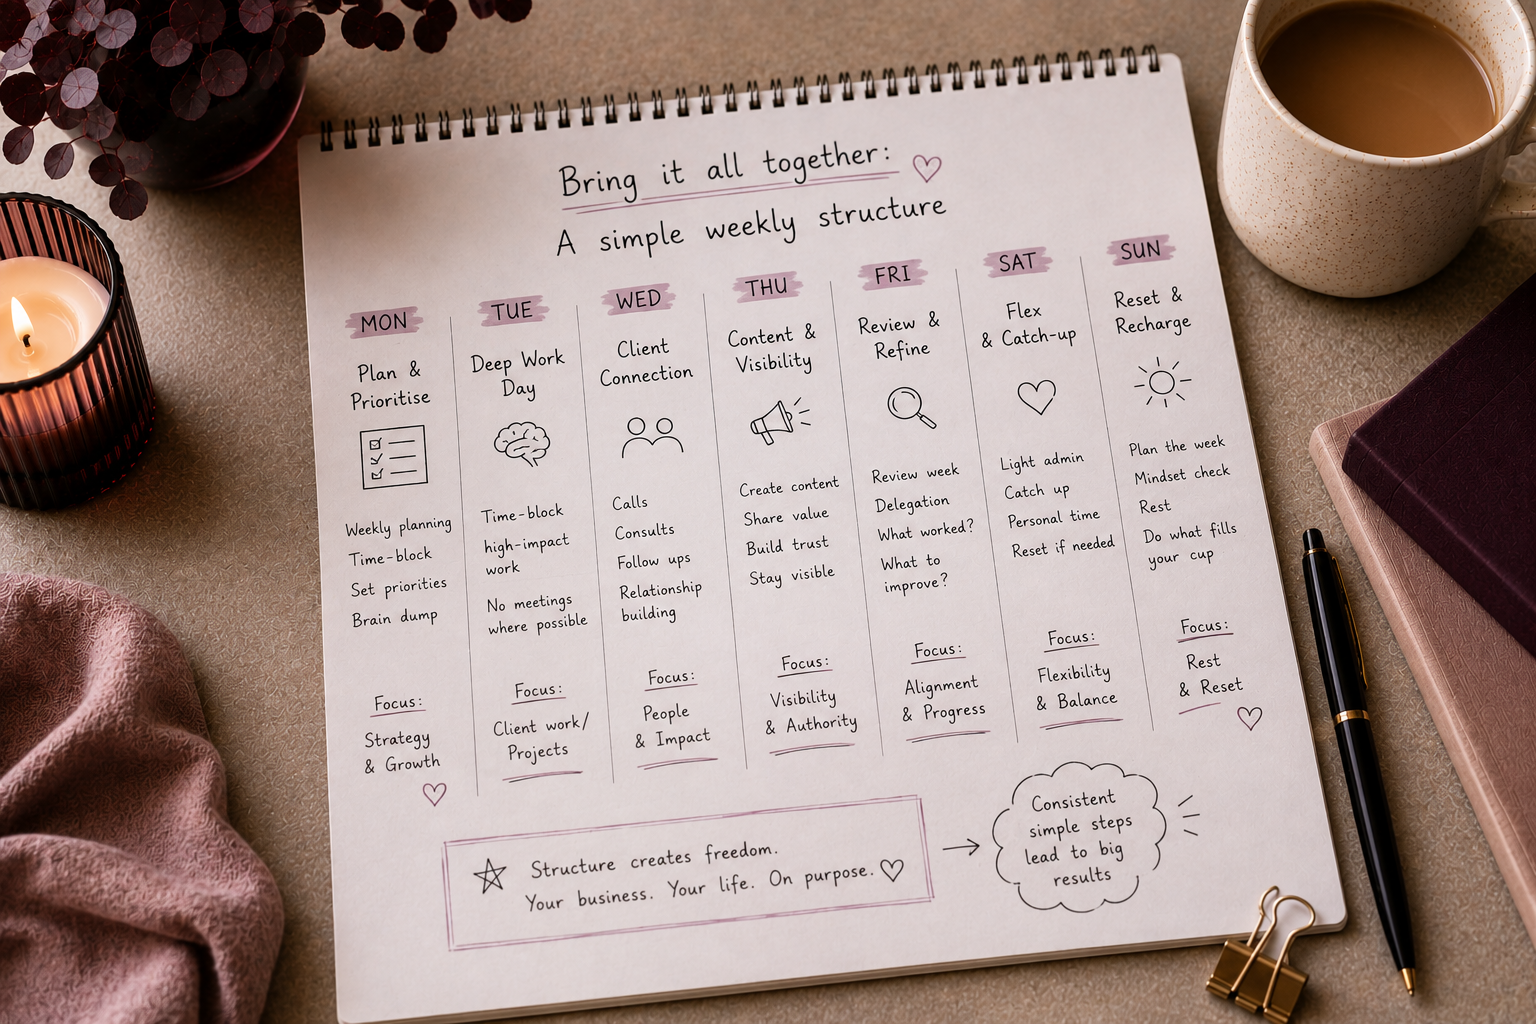 Bring it all together:
A simple weekly structure
MON
Plan &
Prioritise
Weekly planning
Time-block
Set priorities
Brain dump
Focus:
Strategy
& Growth
TUE
Deep Work
Day
Time-block
high-impact
work
No meetings
where possible
Focus:
Client work/
Projects
WED
Client
Connection
Calls
Consults
Follow ups
Relationship
building
Focus:
People
& Impact
THU
Content &
Visibility
Create content
Share value
Build trust
Stay visible
Focus:
Visibility
& Authority
FRI
Review &
Refine
Review week
Delegation
What worked?
What to
improve?
Focus:
Alignment
& Progress
SAT
Flex
& Catch-up
Light admin
Catch up
Personal time
Reset if needed
Focus:
Flexibility
& Balance
SUN
Reset &
Recharge
Plan the week
Mindset check
Rest
Do what fills
your cup
Focus:
Rest
& Reset
Structure creates freedom.
Your business. Your life. On purpose.
Consistent
simple steps
lead to big
results